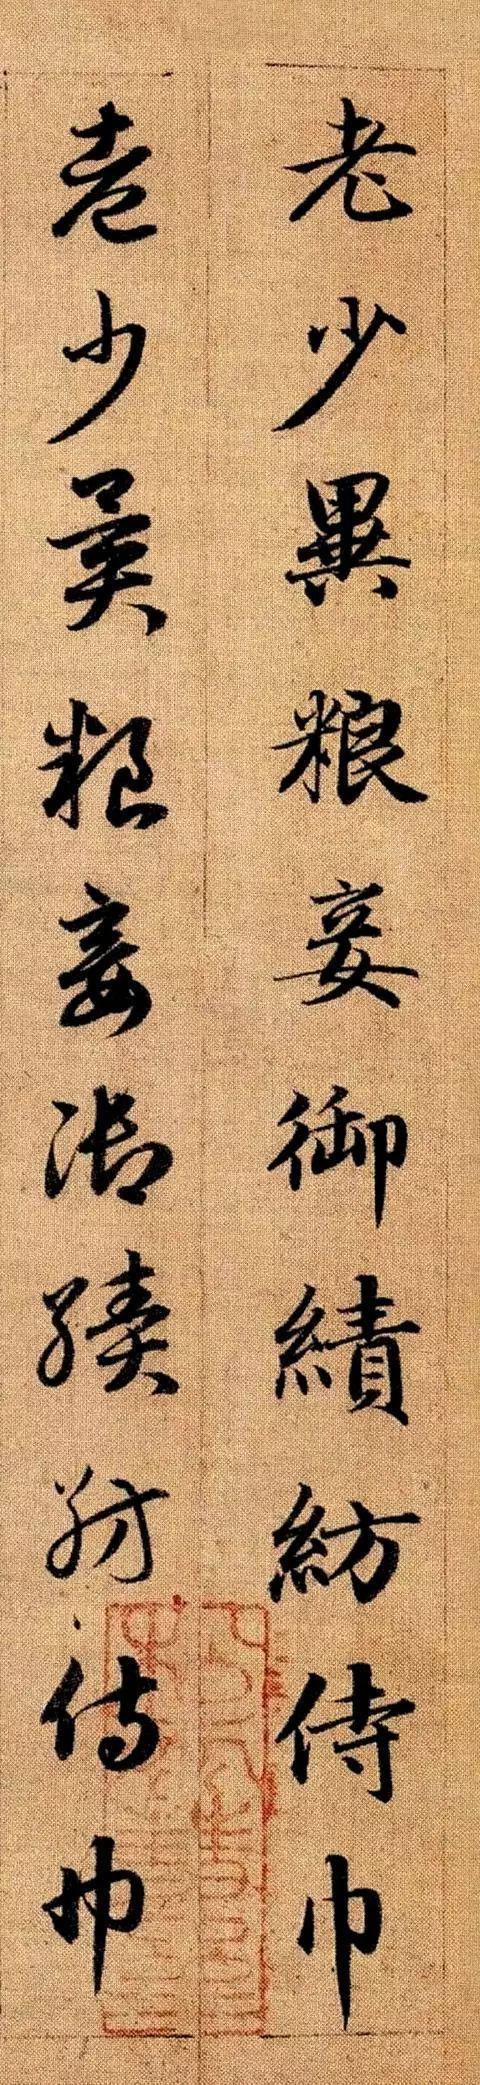 老少異粮妾御績紡侍巾
老少異粮妾御績紡侍巾